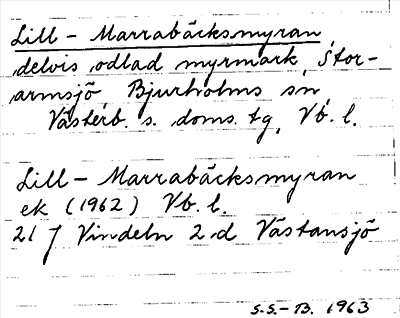 Lill - Marrabäcksmyran,
delvis odlad myrmark, Stor-
armsjö, Bjurholms sn,
Västerb. s. doms. tg, Vb. l.
Lill - Marrabäcksmyran
ek (1962) Vb. l.
21 J Vindeln 2 d Västansjö
S.S.-B. 1963